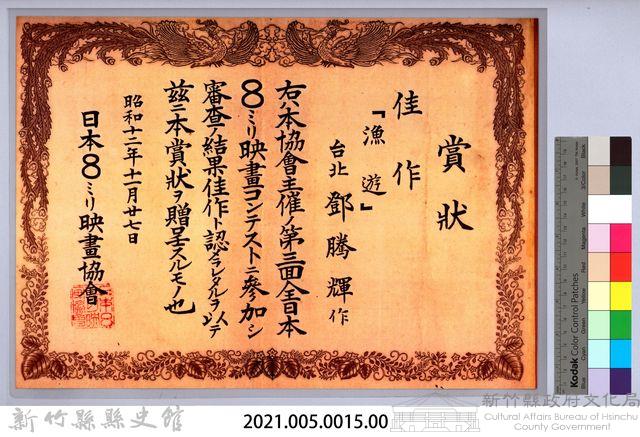 賞狀
佳作
「漁遊」
台北 鄧騰輝作
右ハ本協會主催ノ第三回全日本
8ミリ映畫コンテストニ參加シ
審査ノ結果佳作ト認メラレタルヲ以テ
茲ニ本賞狀ヲ贈呈スルモノ也
昭和十二年十一月廿七日
日本8ミリ映畫協會
Kodak Color Control Patches
Blue
Cyan
Green
Yellow
Red
Magenta
White
3/Color
Black
新竹縣縣史館
2021.005.0015.00
新竹縣政府文化局
Cultural Affairs Bureau of Hsinchu
County Government